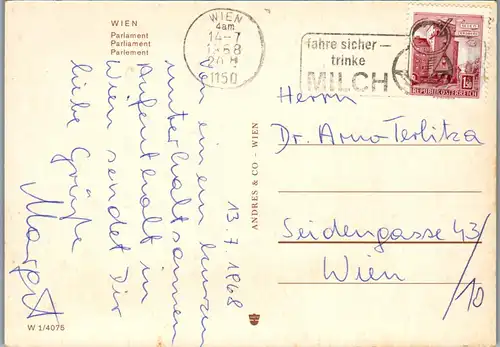 WIEN
Parlament
Parliament
Parlement
WIEN
4am
14-7
1968
20 H
1150
fahre sicher —
trinke
MILCH
REPUBLIK ÖSTERREICH
1.50
13.7.1968
Von einem kurzen
unterhaltsamen
Aufenthalt in
Wien sendet Dir
liebe Grüße
Margarit
ANDRES & CO - WIEN
Herrn
Dr. Arno Terlitza
Seidengasse 43/
/10
Wien
W 1/4075